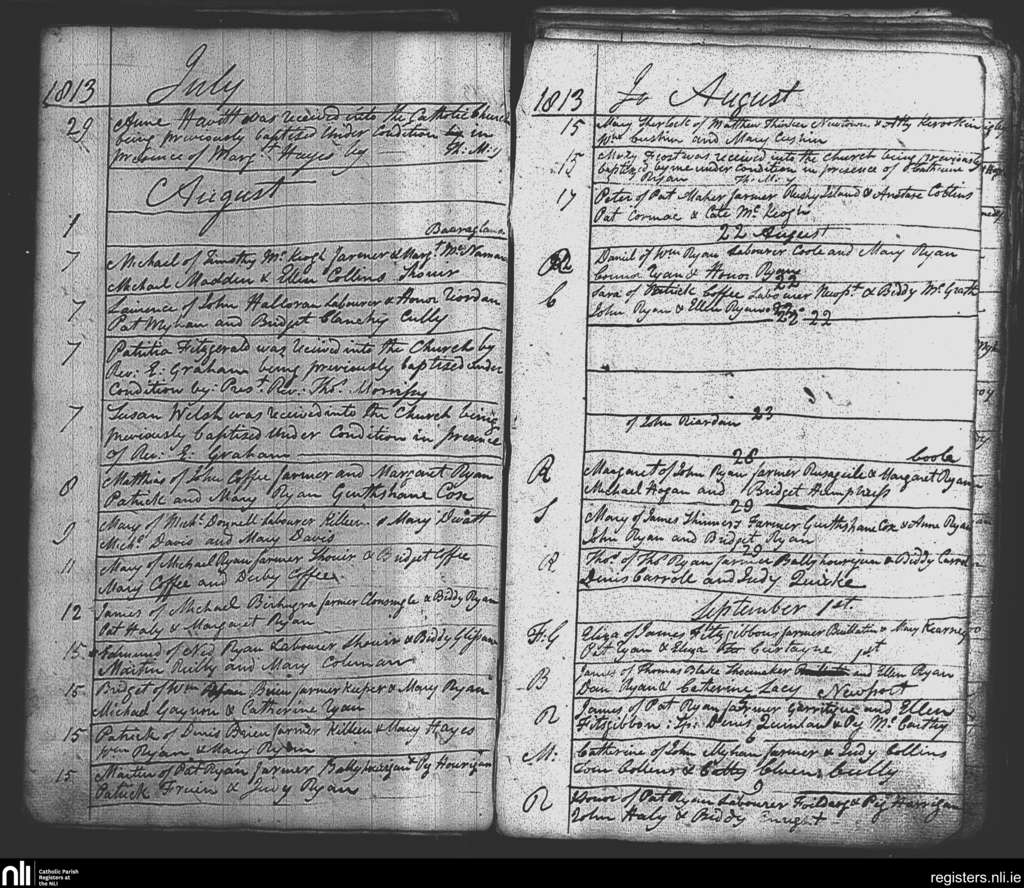 1813 July
29 Anne Havitt was received into the Catholic Church
being previously baptised Under Condition in
presence of Marg.t Hayes by Th: M:y
August
1 Baaraglanna
7 Michael of Timothy Mc Keogh farmer & Marg.t Mc Namara
Michael Madden & Ellen Collins Shouir
7 Laurence of John Halloran Labourer & Honor Riordan
Pat Myhan and Bridget Clanchy Cully
7 Patritia Fitzgerald was received into the Church by
Rev: E: Graham being previously baptised under
Condition by: Prest. Rev: Thos. Morrissy
7 Susan Welsh was received into the Church being
previously baptised Under Condition in presence
of Rev: E: Graham
8 Matthias of John Coffee farmer and Margaret Ryan
Patrick and Mary Ryan Gurthshane Cox
9 Mary of Mich.l Donnell Labourer Killeen & Mary
Mich.l Davis and Mary Davis
11 Mary of Michael Ryan farmer Shouir & Bridget Coffee
Mary Coffee and Derby Coffee
12 James of Michael farmer & Biddy Ryan
Pat Haly & Margaret Ryan
15 Edmund of Ned Ryan Labourer Shouir & Biddy
Martin Reilly and Mary Coleman
15 Bridget of Wm Brien farmer Keeper & Mary Ryan
Michael Gaynor & Catherine Ryan
15 Patrick of Denis Brien farmer Killeen & Mary Hayes
Wm Ryan & Mary Ryan
15 Martin of Pat Ryan farmer & Peg Hourigan
Patrick & Judy Ryan
1813 To August
15 Mary Sherlock of Matthew Newtown & Atty
Wm Cushin and Mary Cushin
15 Molly Frost was received into the Church being previously
baptized by me under condition in presence of Catherine
Ryan Th: M: y
17 Peter of Pat Maher farmer Rushy Island & Anstace Collins
Pat Cormac & Cate Mc Keogh
22 August
R Daniel of Wm Ryan Labourer Coole and Mary Ryan
Connor Ryan & Honor Ryan
22
C Sara of Patrick Coffee Labourer Newpt. & Biddy Mc Grath
John Ryan & Ellen Ryan
22 22
of John Riardan 23
26 Coole
R Margaret of John Ryan farmer & Margaret Ryan
Michael Hogan and Bridget Humphrys
29
S Mary of James Skinners Farmer Gurthshane Cox & Anne Ryan
John Ryan and Bridget Ryan
29
R Thos. of Thos Ryan farmer Ballyhourigan & Biddy Carroll
Denis Carroll and Judy Quirke
September 1st.
F:G Eliza of James Fitzgibbon farmer & Mary Kearney
Pat Ryan & Eliza Curtayne
1st
B James of Thomas Blake Shoemaker and Ellen Ryan
Dan Ryan & Catherine Lacy Newport
R James of Pat Ryan farmer Garrityne and Ellen
Fitzgibbon: Sp: Denis Quinlan & Peg Mc Carthy
6
M: Catherine of John Myhan farmer & Judy Collins
Tom Collins & Cully
9
R Honor of Pat Ryan Labourer & Peg Harrigan
John Haly & Biddy Enright
nli Catholic Parish
Registers at
the NLI
registers.nli.ie